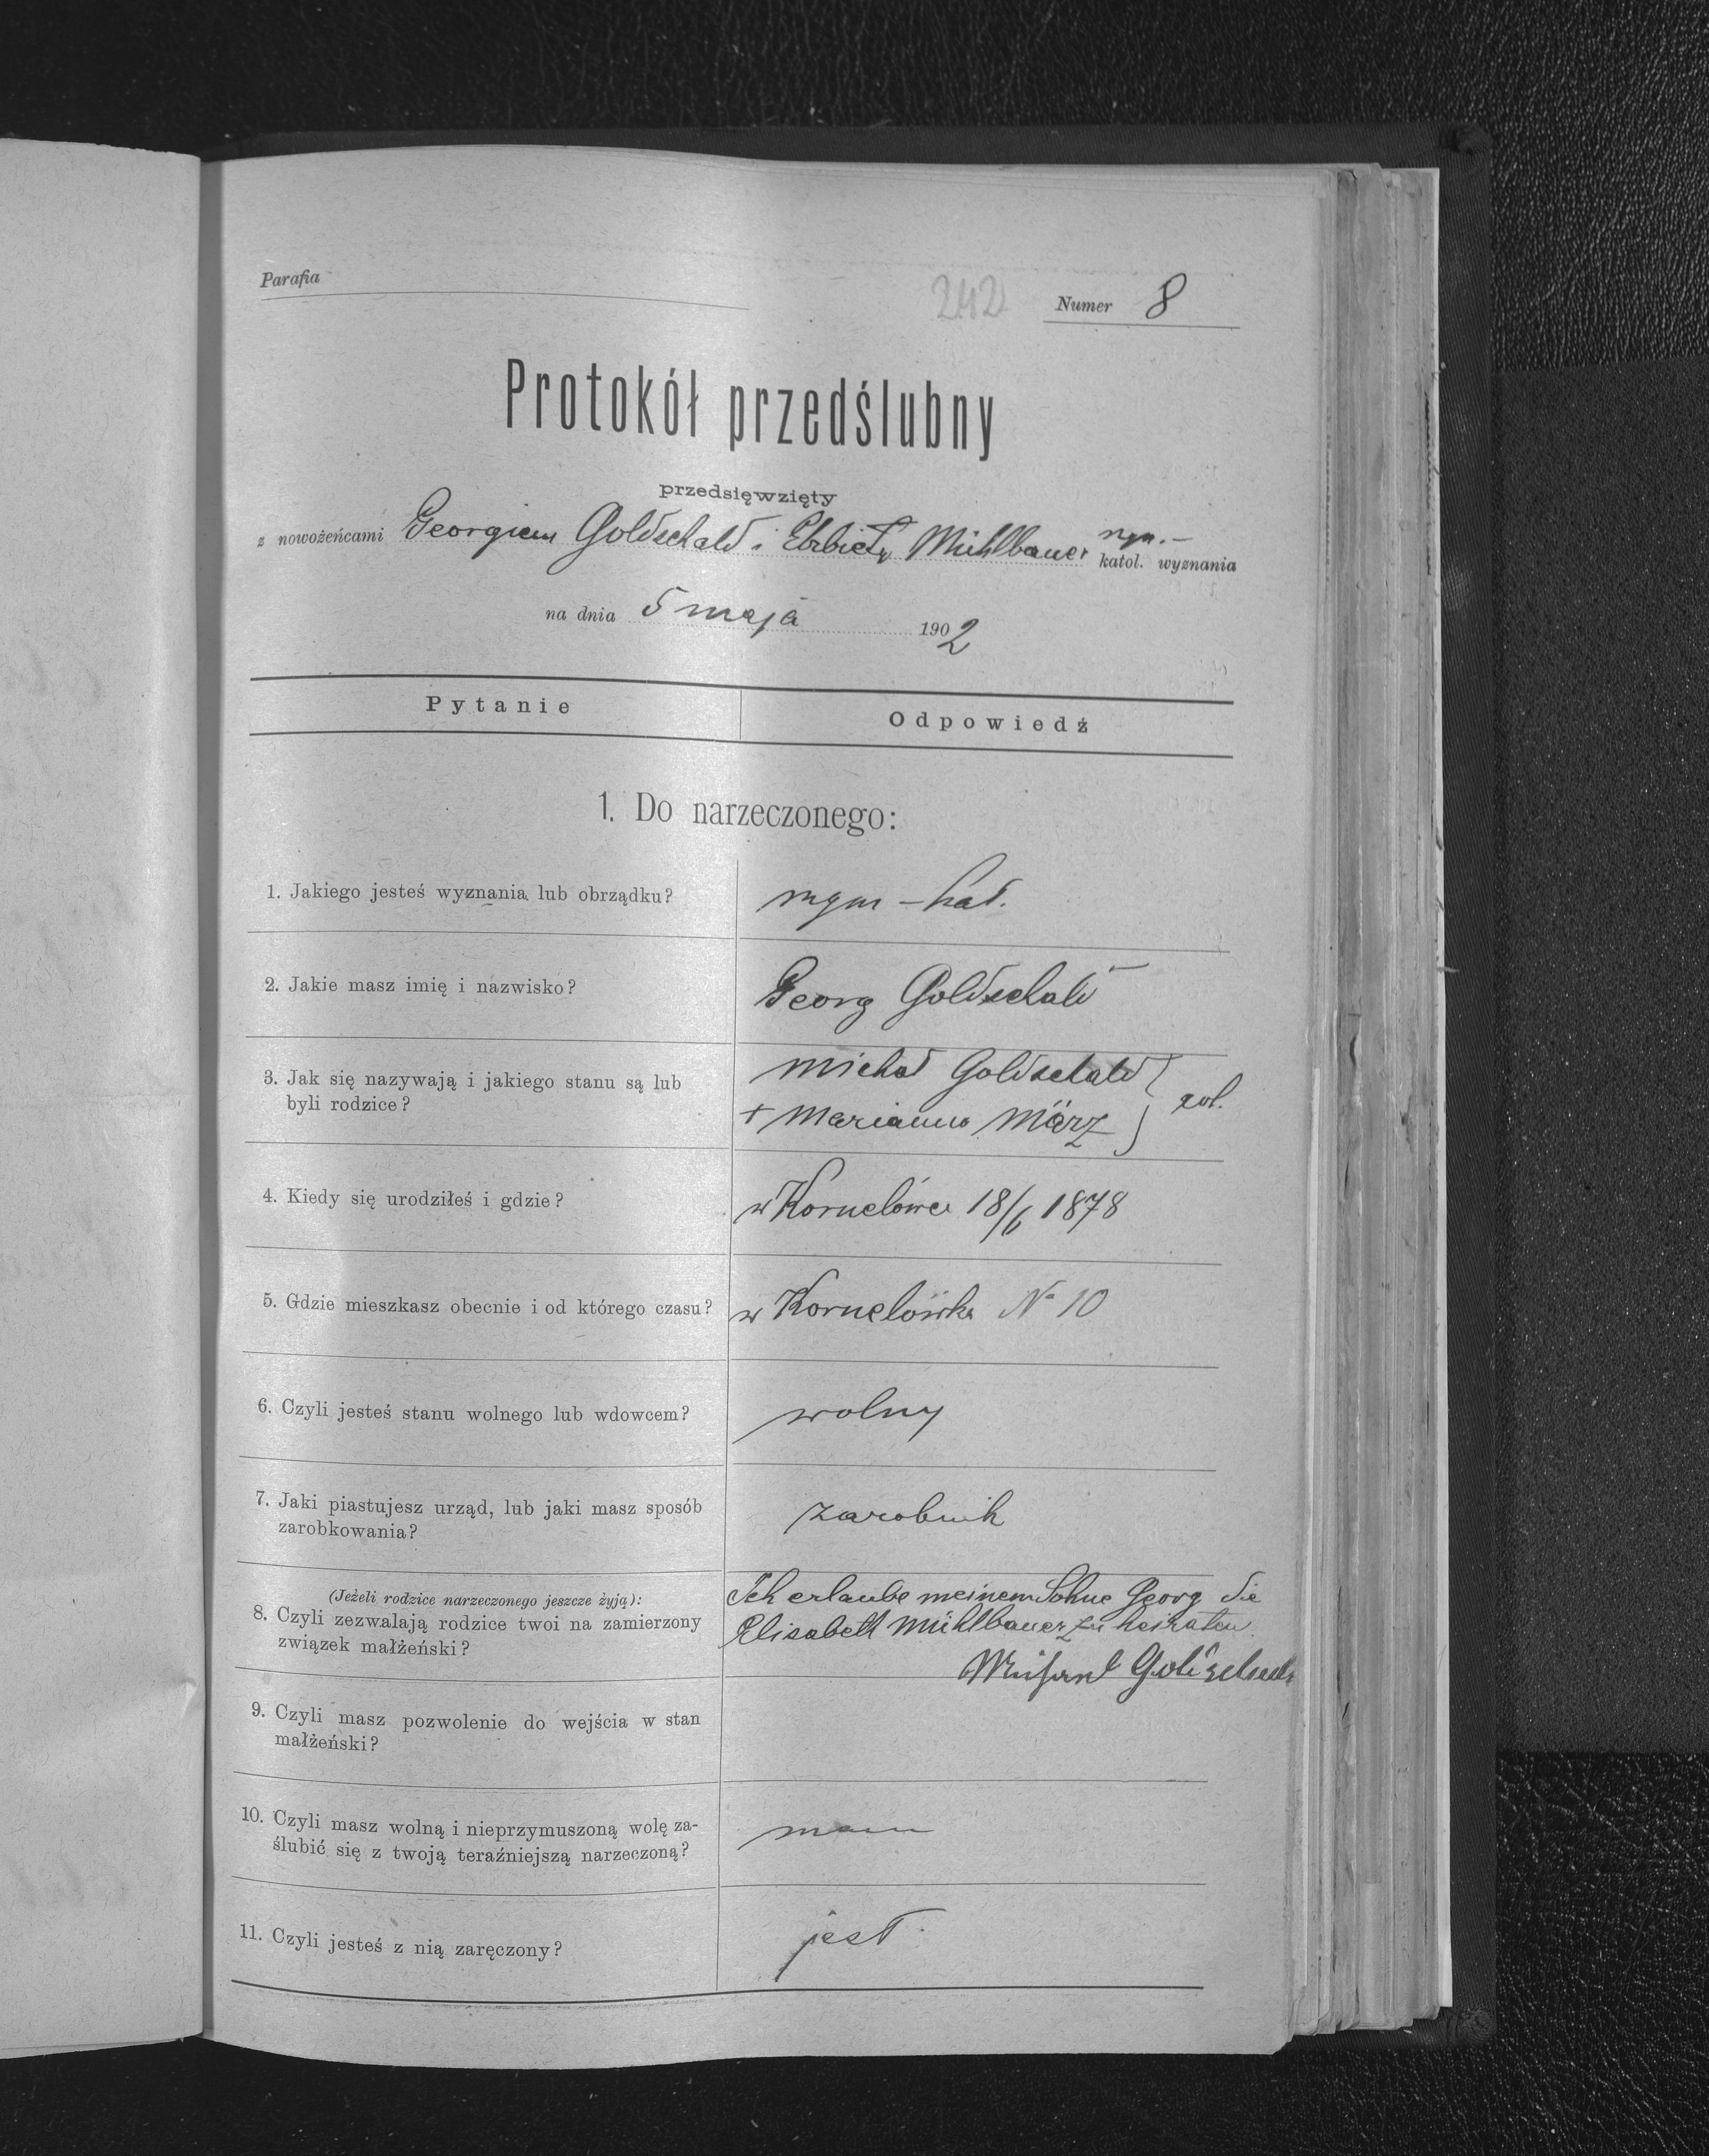 Parafia
242 Numer 8
Protokół przedślubny
przedsięwzięty
z nowożeńcami Georgiem Goldschald i Elżbietą Mühlbauer rzym.- katol. wyznania
na dnia 5 maja 1902
Pytanie Odpowiedź
1. Do narzeczonego:
1. Jakiego jesteś wyznania lub obrządku? rzym - kat.
2. Jakie masz imię i nazwisko? Georg Goldschald
3. Jak się nazywają i jakiego stanu są lub Michał Goldschald
byli rodzice? + Marianna März
4. Kiedy się urodziłeś i gdzie? w Kornelówce 18/6 1878
5. Gdzie mieszkasz obecnie i od którego czasu? w Kornelówka No 10
6. Czyli jesteś stanu wolnego lub wdowcem? wolny
7. Jaki piastujesz urząd, lub jaki masz sposób
zarobkowania? zarobnik
(Jeżeli rodzice narzeczonego jeszcze żyją): Ich erlaube meinem Sohne Georg die
8. Czyli zezwalają rodzice twoi na zamierzony Elisabeth Mühlbauer zu heiraten.
związek małżeński? Michael
9. Czyli masz pozwolenie do wejścia w stan
małżeński?
10. Czyli masz wolną i nieprzymuszoną wolę za-
ślubić się z twoją teraźniejszą narzeczoną? mam
11. Czyli jesteś z nią zaręczony? jest